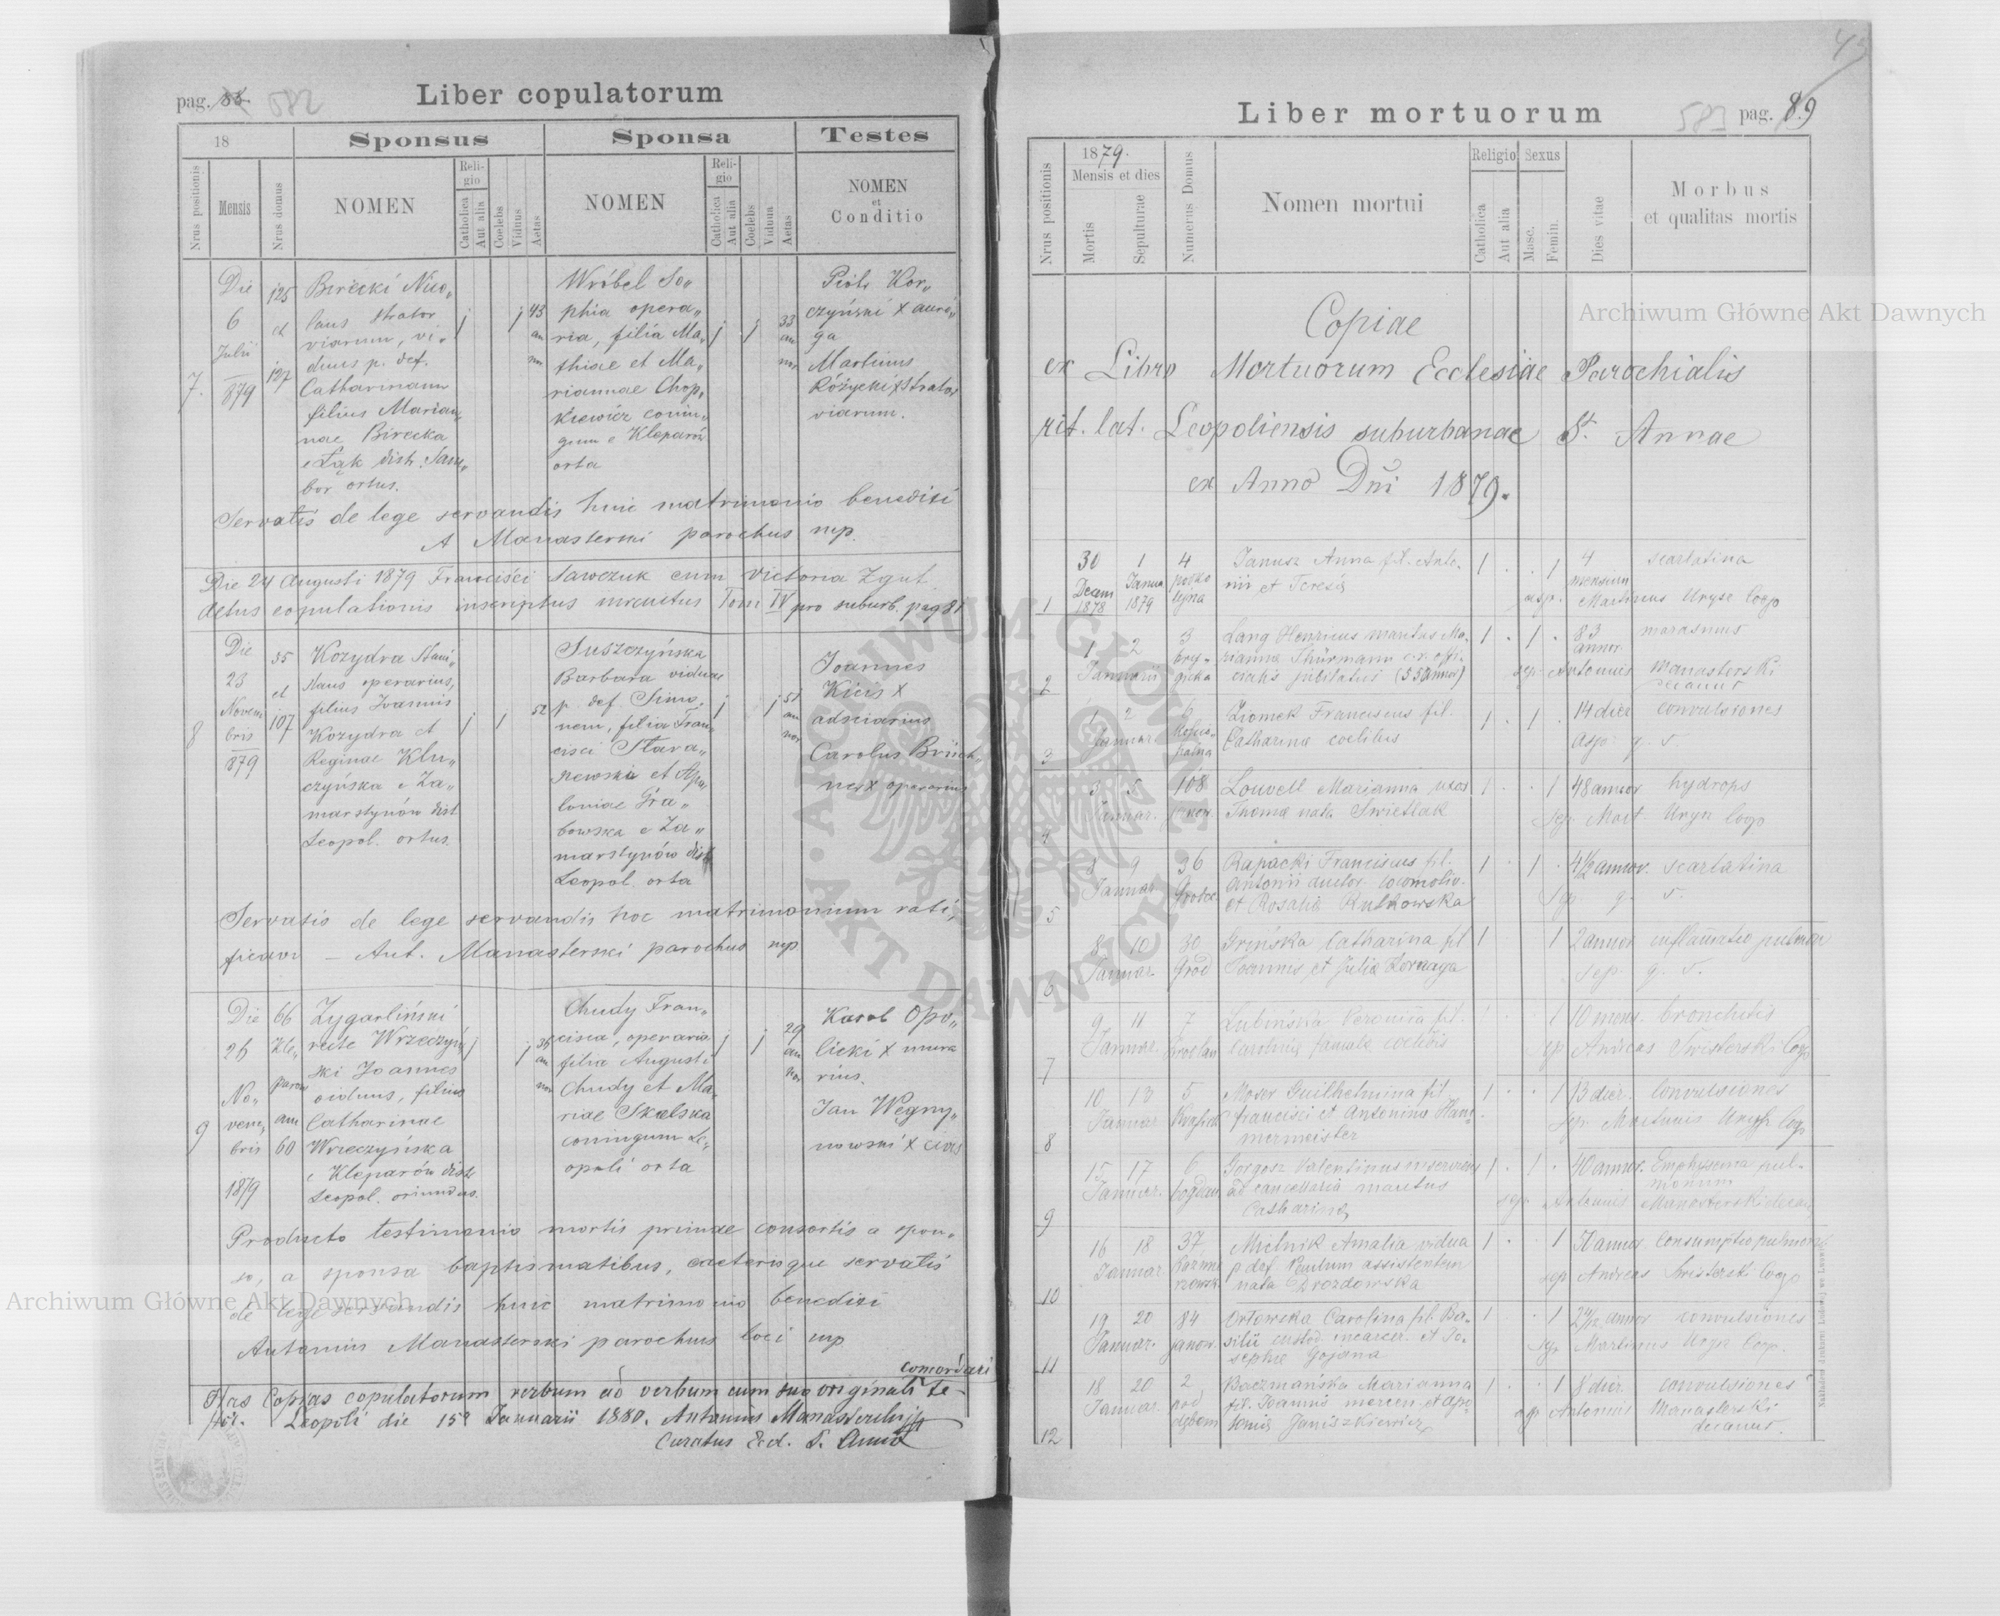 pag. 83. 582
Liber copulatorum
18
Sponsus
Sponsa
Testes
Nrus positionis
Mensis
Nrus domus
NOMEN
Religio
Catholica
Aut alia
Coelebs
Viduus
Aetas
NOMEN
Religio
Catholica
Aut alia
Coelebs
Vidua
Aetas
NOMEN
et
Conditio
7.
Die
6
Julii
879
125
et
127
Birecki Nico„
laus strator
viarum, vi„
duus p. def.
Catharinam
filius Marian„
nae Birecka
e Łąk distr. Sam„
bor ortus.
43
an
nor
Wróbel So„
phia opera„
ria, filia Ma„
thiae et Ma„
riannae Chop„
kiewicz coniu„
gum e Kleparów
orta
33
an
nor
Piotr Kor„
czyński x auri„
ga
Martinus
Różycki x Strator
viarum.
Servatis de lege servandis huic matrimonio benedixi
A Manasterski parochus mp.
Die 24 Augusti 1879 Francisci Sawczuk cum Victoria Zgut
actus copulationis inscriptus Tom IV pro suburb. pag 81
8
Die
23
Novem
bris
879
35
et
107
Kozydra Stani„
slaus operarius,
filius Joannis
Kozydra et
Reginae Klu„
czyńska e Za„
marstynów dist
Leopol. ortus.
52
Suszczyńska
Barbara vidua
p. def. Simo„
nem, filia Fran„
cisci Stara„
szewski et Apo
loniae Gra„
bowska e Za„
marstynów dist
Leopol. orta
51
an
nor
Joannes
Kicis x
adsciarius
Carolus Brück„
ner x operarius
Servatis de lege servandis hoc matrimonium rati„
ficavi – Ant. Manasterski parochus mp
9
Die
26
No„
vem„
bris
1879
66
Kle„
parow
am
60
Zygarliński
recte Wrzeczyń
ski Joannes
viduus, filius
Catharinae
Wrzeczyńska
e Kleparów distr
Leopol. oriundus.
36
an
nor
Chudy Fran„
cisca, operaria
filia Augusti
Chudy et Ma„
riae Skalska
coniugum Le„
opoli orta
29
an
nor
Karol Opo„
licki x mura
rius.
Jan Węgrzy„
nowski x civis
Producto testimonio mortis primae consortis a spon„
so, a sponsa baptismatibus, caeterisque servatis
de lege servandis huic matrimonio benedixi
Antonius Manasterski parochus loci mp
concordari
Has Copias copulatorum verbum ad verbum cum suo originali te-
stor. Leopoli die 15a Januarii 1880. Antonius Manasterski
Curatus Ecl. S. Annae
583
Liber mortuorum
pag. 89
Nrus positionis
1879.
Mensis et dies
Mortis
Sepulturae
Numerus Domus
Nomen mortui
Religio
Catholica
Aut alia
Sexus
Masc.
Femin.
Dies vitae
Morbus
et qualitas mortis
Copiae
ex Libro Mortuorum Ecclesiae Parochialis
rit. lat. Leopoliensis suburbanae St. Annae
ex Anno Dni 1879.
1
30
Decem
1878
1
Janua
1879
4
Janusz Anna fil. Anto„
nii et Teresiae
4
mensium
scarlatina
Martinus Uryga coop
2
1
2
Januarii
3
bry„
gicka
Lang Henricus maritus Ma„
rianna Thürmann c.r. offi„
cialis jubilatus (55 annor)
83
annor.
marasmus
sep. Antonius Manasterski
decanus
3
1
2
Januar
6
Ziomek Franciscus fil.
Catharina coelibis
14 dier
convulsiones
4
3
5
Januar.
108
Louvell Marianna uxor
Thoma nata Swietlak
48 annor
hydrops
sep. Mart. Uryga coop
5
8
9
Januar
36
Grodec
Rapacki Franciscus fil.
Antonii ductor. locomotiv.
et Rosalia Rutkowska
4½ annor.
scarlatina
Sep. q. s.
6
8
10
Januar.
30
Grod
Grińska Catharina fil
Joannis et Julia Lornaga
2 annor
inflamatio pulmon
sep. q. s.
7
9
11
Januar.
7
Lubińska Veronica fil.
Carolina famula coelibis
10 mens.
bronchitis
sep Andreas Swisterski coop
8
10
13
Januar
5
Moser Guilhelmina fil
francisci et Antonina Ham„
mermeister
13 dier.
convulsiones
Sep. Martinus Uryga coop
9
15
17
Januar.
6
bogdan
Gorgosz Valentinus inserviens
ad cancellaria maritus
Catharina
40 annor.
Emphysema pul„
monum
sep. Antonius Manasterski decan
10
16
18
Januar.
37
Kazimi
rzowsk
Mielnik Amalia vidua
p def. Paulum assistentem
nata Drozdowska
50 annor.
Consumptio pulmon
sep Andreas coop
11
19
20
Januar.
84
janow.
Orłowska Carolina fil. Ba„
silii custod. incarcer. et Jo„
sepha Gojana
convulsiones
sep. Martinus Uryga Coop.
12
18
20
Januar.
2
pod
dębem
Baczmańska Marianna
fil. Joannis mercen. et Apo
lonia Janiszkiewicz
8 dier
convulsiones
sep Antonius Manasterski
decanus.
Archiwum Główne Akt Dawnych
Archiwum Główne Akt Dawnych
ARCHIWUM GŁÓWNE AKT DAWNYCH